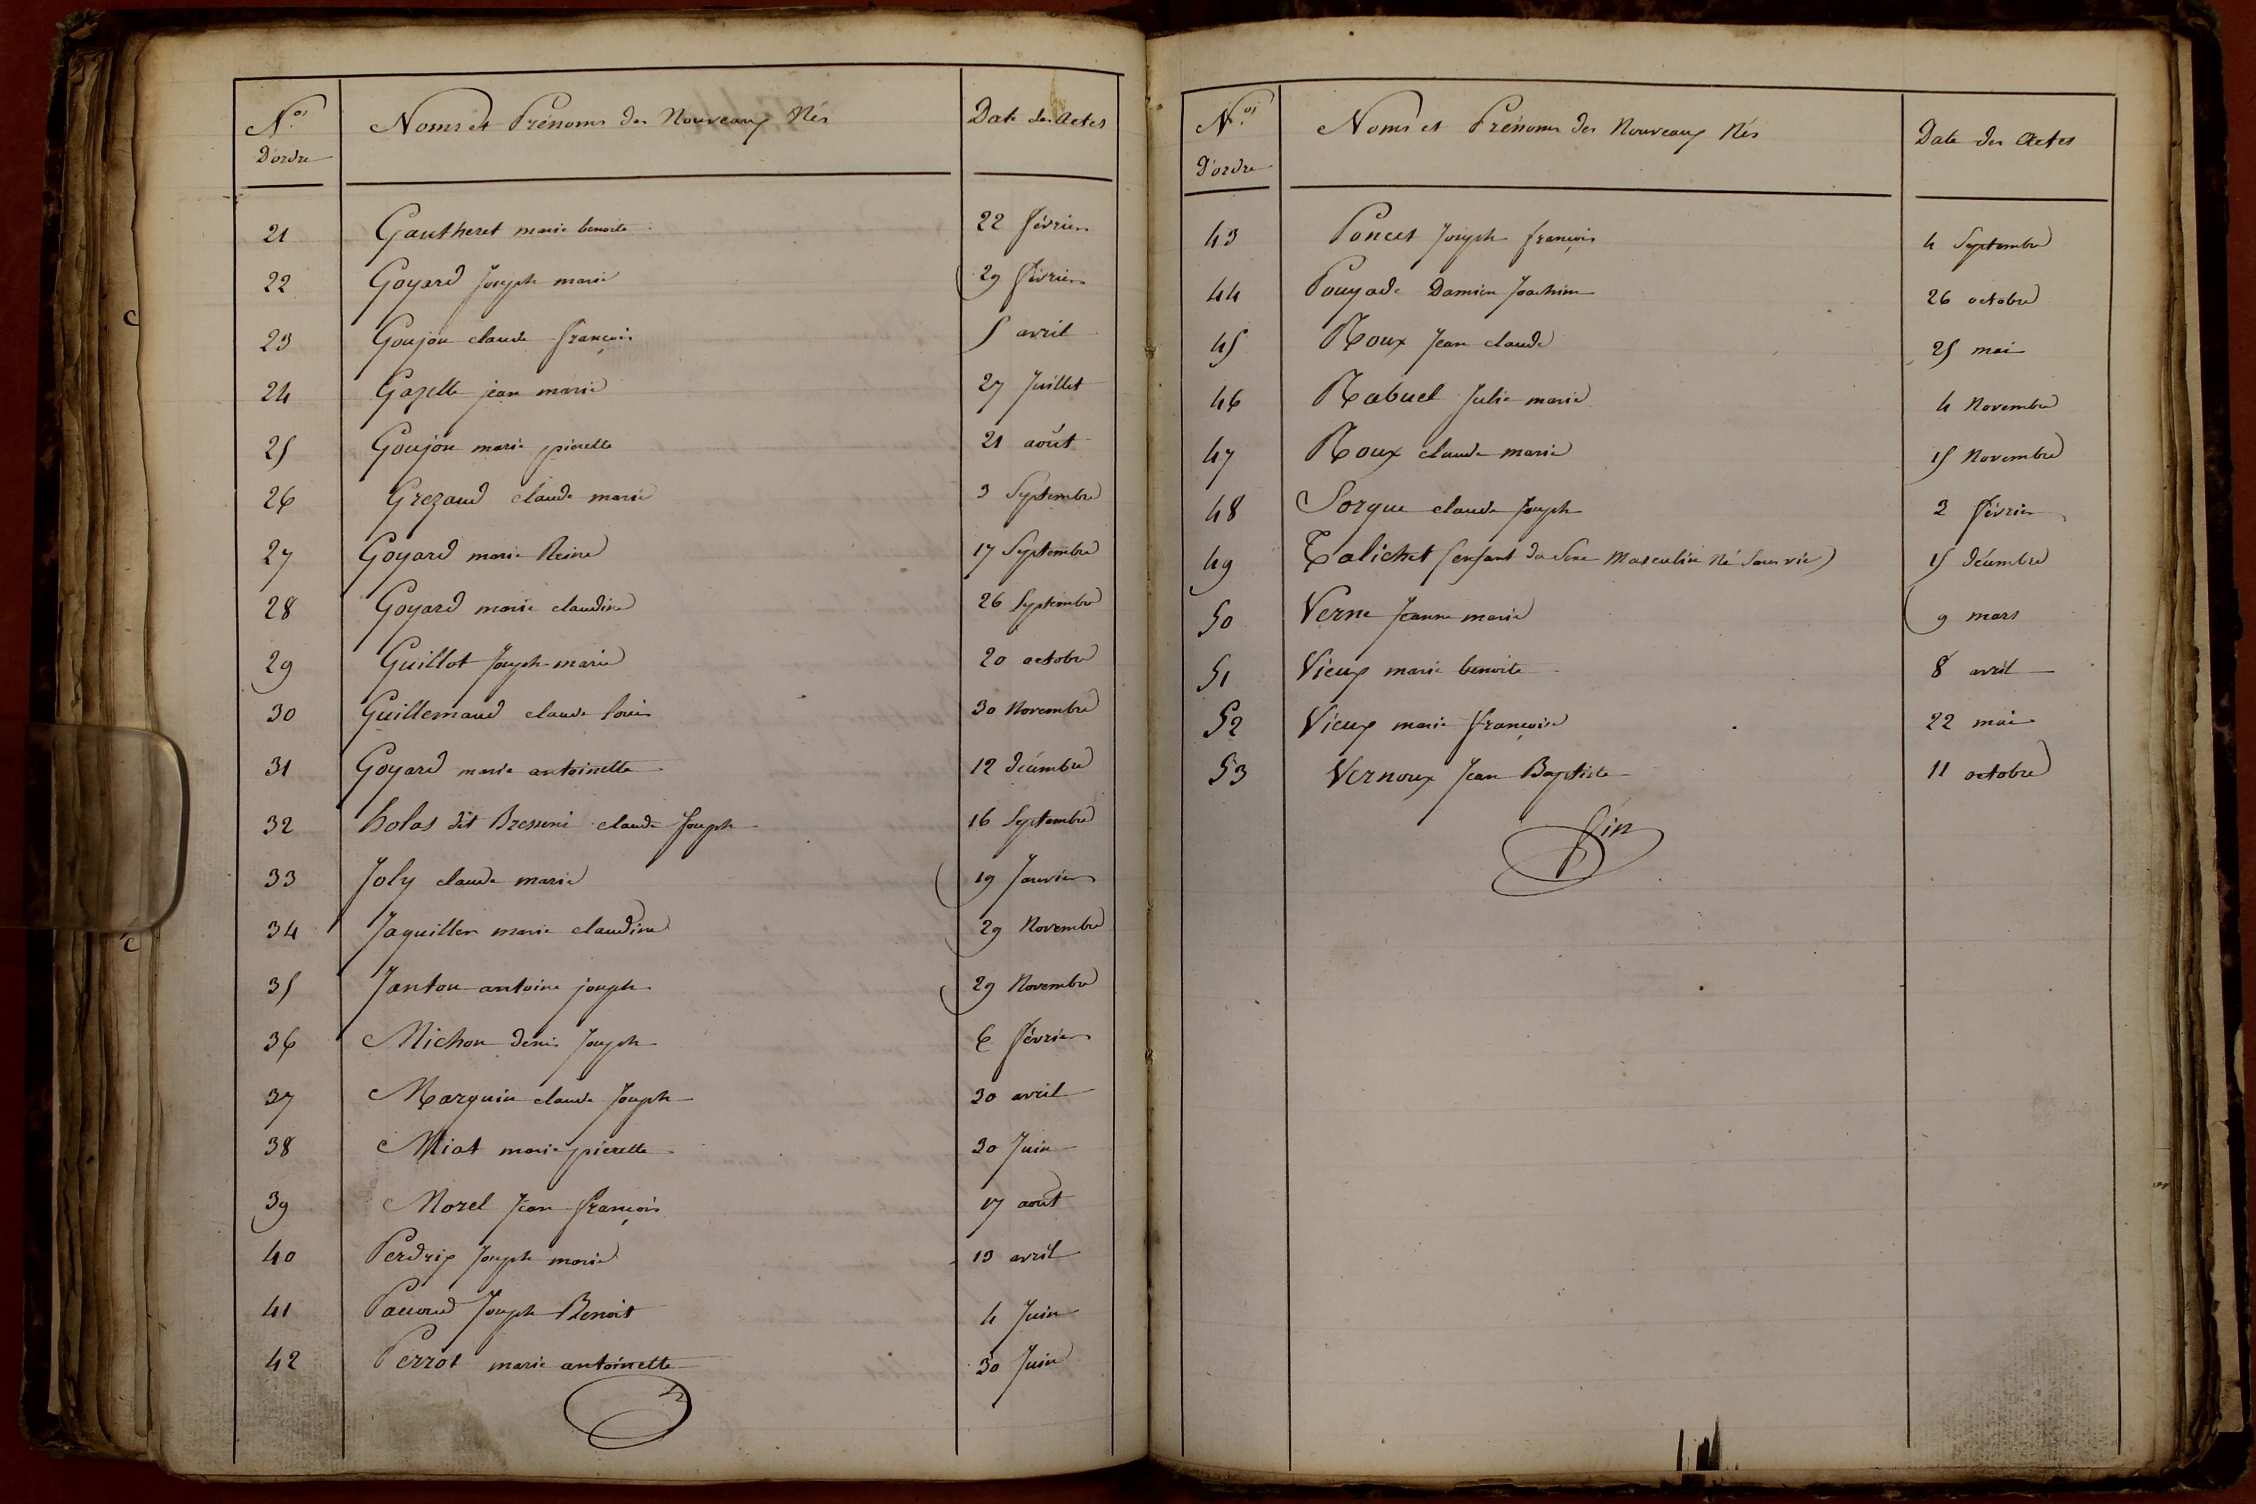 Nos Noms et Prénoms des Nouveaux Nés Date des Actes
D'ordre
21 Gautheret marie benoite 22 février
22 Goyard Joseph marie 29 février
23 Goujon claude françois 5 avril
24 Gazelle jean marie 27 Juillet
25 Goujon marie pierrette 21 août
26 Grezaud claude marie 3 Septembre
27 Goyard marie Reine 17 Septembre
28 Goyard marie claudine 26 Septembre
29 Guillot Joseph marie 20 octobre
30 Guillemaud claude Louis 30 Novembre
31 Goyard marie antoinette 12 décembre
32 holas dit Bressem claude Joseph 16 Septembre
33 Joly claude marie 19 Janvier
34 Jaquiller marie claudine 29 Novembre
35 Janton antoine joseph 29 Novembre
36 Michon denis Joseph 6 février
37 Marguin claude Joseph 30 avril
38 Miat marie pierette 30 Juin
39 Morel Jean françois 17 août
40 Perdrix Joseph marie 13 avril
41 Joseph Benoit 4 Juin
42 Perrot marie antoinette 30 Juin
Nos Noms et Prénoms des Nouveaux Nés Date des Actes
D'ordre
43 Poncet Joseph françois 4 Septembre
44 Pouyade Damien Joachim 26 octobre
45 Roux Jean claude 25 mai
46 Rabuel Julie marie 4 Novembre
47 Roux claude marie 15 Novembre
48 Sorgue claude Joseph 2 février
49 Talichet (enfant du Sexe Masculin Né Sans vie) 15 décembre
50 Verne Jeanne marie 9 mars
51 Vieux marie benoite 8 avril
52 Vieux marie françoise 22 mai
53 Vernoux Jean Baptiste 11 octobre
fin